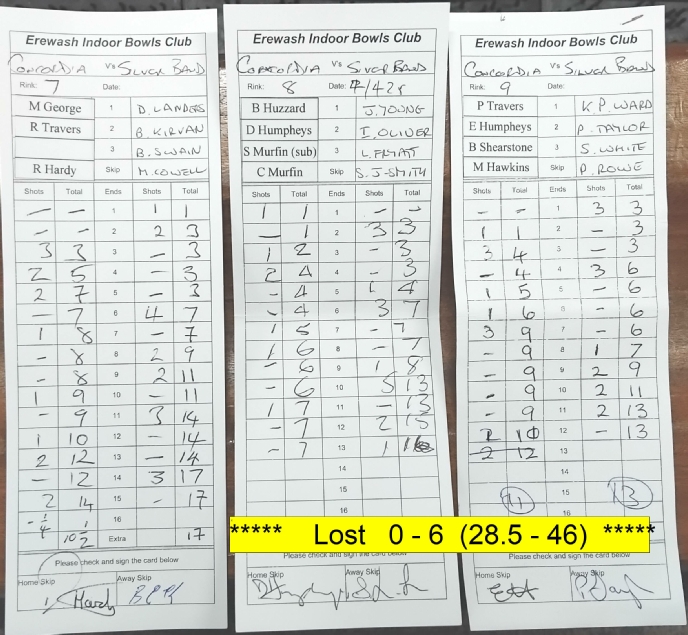 Erewash Indoor Bowls Club
CONCORDIA VS SILVER BAND
Rink: 7 Date:
M George 1 D. LANDERS
R Travers 2 B. KIRVAN
3 B. SWAIN
R Hardy Skip M. COWELL
Shots Total Ends Shots Total
— — 1 1 1
- - 2 2 3
3 3 3 — 3
2 5 4 — 3
2 7 5 — 3
— 7 6 4 7
1 8 7 — 7
- 8 8 2 9
- 8 9 2 11
1 9 10 — 11
- 9 11 3 14
1 10 12 — 14
2 12 13 — 14
— 12 14 3 17
2 14 15 - 17
16
10 1/2 Extra 17
Please check and sign the card below
Home Skip Away Skip
Hardy
Erewash Indoor Bowls Club
CONCORDIA VS BAND
Rink: 8 Date:
B Huzzard 1 J. YOUNG
D Humpheys 2 I. OLIVER
S Murfin (sub) 3
C Murfin Skip S. J-SMITH
Shots Total Ends Shots Total
1 1 1 - -
— 1 2 3 3
1 2 3 - 3
2 4 4 - 3
- 4 5 1 4
- 4 6 3 7
1 5 7 - 7
1 6 8 - 7
- 6 9 1 8
- 6 10 5 13
1 7 11 — 13
- 7 12 2 15
- 7 13 1
14
15
16
Please check and sign the card below
Home Skip Away Skip
Erewash Indoor Bowls Club
CONCORDIA VS SILVER BAND
Rink: 9 Date:
P Travers 1 K. P. WARD
E Humpheys 2 P. TAYLOR
B Shearstone 3 S. WHITE
M Hawkins Skip P. ROWE
Shots Total Ends Shots Total
- - 1 3 3
1 1 2 - 3
3 4 3 - 3
- 4 4 3 6
1 5 5 - 6
1 6 6 - 6
3 9 7 - 6
- 9 8 1 7
- 9 9 2 9
- 9 10 2 11
- 9 11 2 13
10 12 - 13
2 12 13
14
11 15 13
16
***** Lost 0 - 6 (28.5 - 46) *****
Please check and sign the card below
Home Skip Away Skip